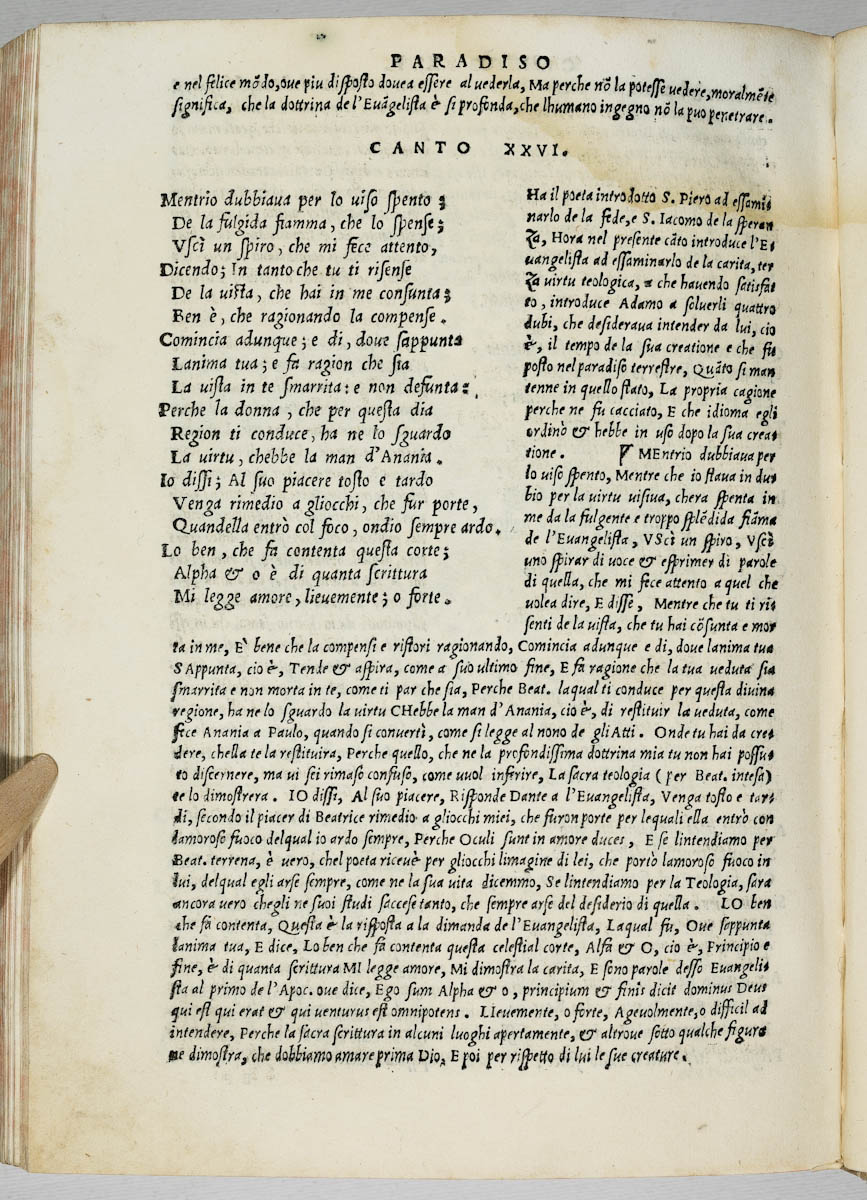 PARADISO
e nel felice mõdo, oue piu disposto douea essere al uederla, Ma perche nõ la potesse uedere, moralmẽte
significa, che la dottrina de l'Euãgelista è si profonda, che lhumano ingegno nõ la puo penetrare.
CANTO XXVI.
Mentrio dubbiaua per lo uiso spento;
De la fulgida fiamma, che lo spense;
Vscì un spiro, che mi fece attento,
Dicendo; In tanto che tu ti risense
De la uista, che hai in me consunta;
Ben è, che ragionando la compense.
Comincia adunque; e di, doue sappunta
Lanima tua; e fa ragion che sia
La uista in te smarrita: e non defunta:
Perche la donna, che per questa dia
Region ti conduce, ha ne lo sguardo
La uirtu, chebbe la man d'Anania.
Io dissi; Al suo piacere tosto e tardo
Venga rimedio a gliocchi, che fur porte,
Quandella entrò col foco, ondio sempre ardo.
Lo ben, che fa contenta questa corte;
Alpha & o è di quanta scrittura
Mi legge amore, lieuemente; o forte.
Ha il poeta introdotto S. Piero ad essami-
narlo de la fede, e S. Iacomo de la speran
za, Hora nel presente cãto introduce l'E-
uangelista ad essaminarlo de la carita, ter
za uirtu teologica, & che hauendo satisfat
to, introduce Adamo a soluerli quattro
dubi, che desideraua intender da lui, cio
è, il tempo de la sua creatione e che fu
posto nel paradiso terrestre, Quãto si man
tenne in quello stato, La propria cagione
perche ne fu cacciato, E che idioma egli
ordinò & hebbe in uso dopo la sua crea-
tione. MEntrio dubbiaua per
lo uiso spento, Mentre che io staua in du-
bio per la uirtu uisiua, chera spenta in
me da la fulgente e troppo splẽdida fiãma
de l'Euangelista, VScì un spiro, Vscì
uno spirar di uoce & esprimer di parole
di quella, che mi fece attento a quel che
uolea dire, E disse, Mentre che tu ti ri-
senti de la uista, che tu hai cõsunta e mor
ta in me, E' bene che la compensi e ristori ragionando, Comincia adunque e di, doue lanima tua
SAppunta, cio è, Tende & aspira, come a suo ultimo fine, E fa ragione che la tua ueduta sia
smarrita e non morta in te, come ti par che sia, Perche Beat. laqual ti conduce per questa diuina
regione, ha ne lo sguardo la uirtu CHebbe la man d'Anania, cio è, di restituir la ueduta, come
fece Anania a Paulo, quando si conuertì, come si legge al nono de gli Atti. Onde tu hai da cre-
dere, chella te la restituira, Perche quello, che ne la profondissima dottrina mia tu non hai possu-
to discernere, ma ui sei rimaso confuso, come uuol inferire, La sacra teologia (per Beat. intesa)
te lo dimostrera. IO dissi, Al suo piacere, Risponde Dante a l'Euangelista, Venga tosto e tar-
di, secondo il piacer di Beatrice rimedio a gliocchi miei, che furon porte per lequali ella entrò con
lamoroso fuoco delqual io ardo sempre, Perche Oculi sunt in amore duces, E se lintendiamo per
Beat. terrena, è uero, chel poeta riceuè per gliocchi limagine di lei, che portò lamoroso fuoco in
lui, delqual egli arse sempre, come ne la sua uita dicemmo, Se lintendiamo per la Teologia, sara
ancora uero chegli ne suoi studi saccese tanto, che sempre arse del desiderio di quella. LO ben
che fa contenta, Questa è la risposta a la dimanda de l'Euangelista, Laqual fu, Oue sappunta
lanima tua, E dice, Lo ben che fa contenta questa celestial corte, Alfa & O, cio è, Principio e
fine, è di quanta scrittura MI legge amore, Mi dimostra la carita, E sono parole desso Euangeli-
sta al primo de l'Apoc. oue dice, Ego sum Alpha & o, principium & finis dicit dominus Deus
qui est qui erat & qui uenturus est omnipotens. LIeuemente, o forte, Ageuolmente, o difficil ad
intendere, Perche la sacra scrittura in alcuni luoghi apertamente, & altroue sotto qualche figura
ne dimostra, che dobbiamo amare prima Dio, E poi per rispetto di lui le sue creature.